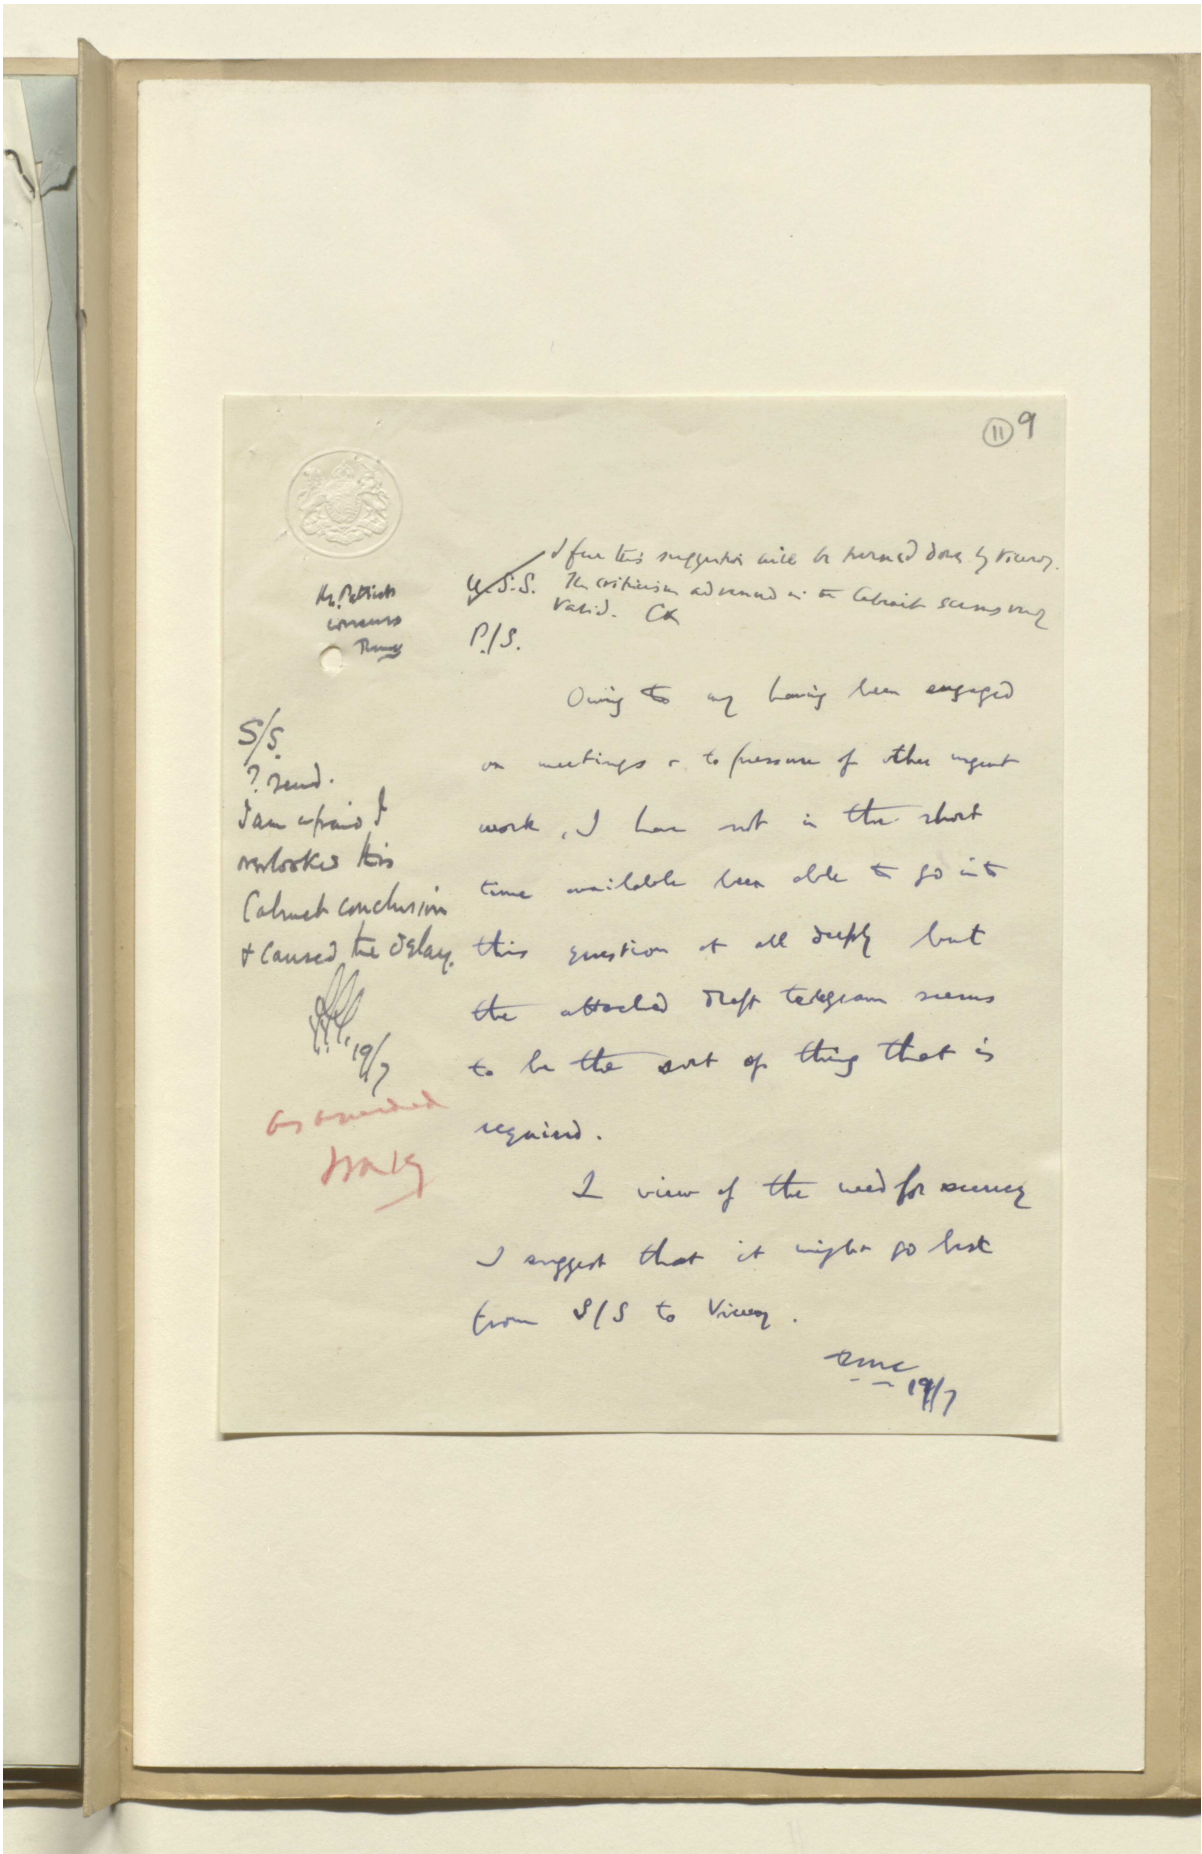 11 9
I fear this suggestion will be turned down by Viceroy.
U.S.S. The criticism advanced in the Cabinet seems very
valid. CK
P./S.
Mr. Patrick
concurs
Owing to my having been engaged
on meetings & to pressure of other urgent
work, I have not in the short
time available been able to go into
this question at all deeply but
the attached draft telegram seems
to be the sort of thing that is
required.
In view of the need for secrecy
I suggest that it might go best
from S/S to Viceroy.
19/7
S/S.
? send.
I am afraid I
overlooked this
Cabinet conclusion
& caused the delay.
19/7
as amended